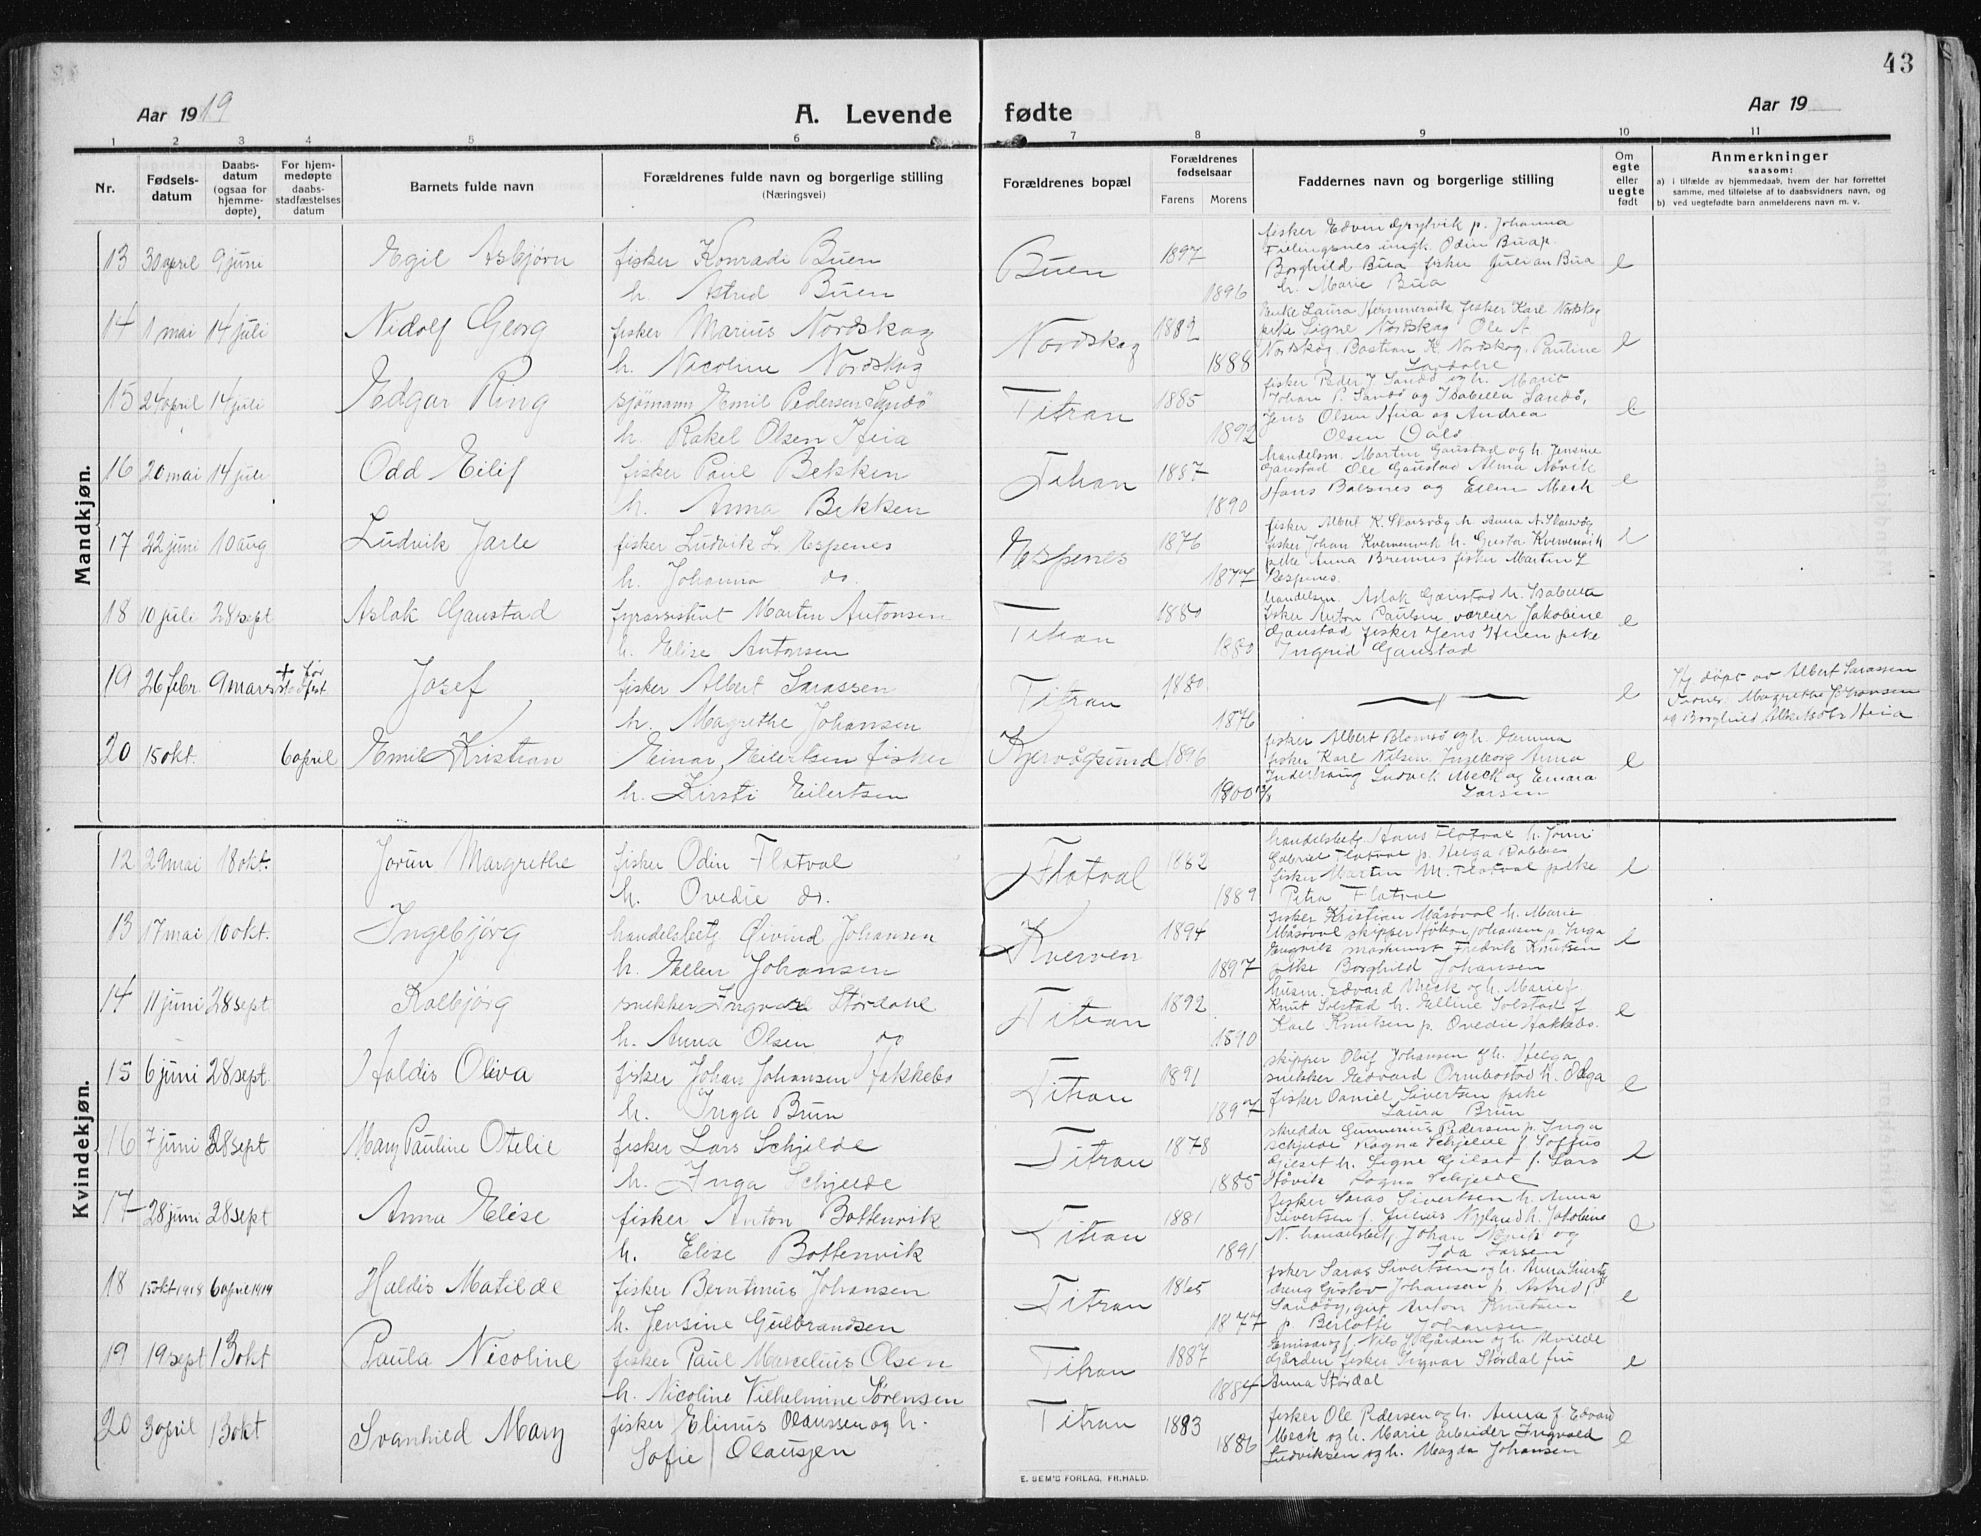 43
Aar 1919
A. Levende fødte
Aar 19
1 2 3 4 5 6 7 8 9 10 11
Nr.
Fødsels-
datum
Daabs-
datum
(ogsaa for
hjemme-
døpte)
For hjem-
medøpte
daabs-
stadfæstelses
datum
Barnets fulde navn
Forældrenes fulde navn og borgerlige stilling
(Næringsvei)
Forældrenes bopæl
Forældrenes
fødselsaar
Farens Morens
Faddernes navn og borgerlige stilling
Om
egte
eller
uegte
født
Anmerkninger
saasom:
a) i tilfælde av hjemmedaab, hvem der har forrettet
samme, med tilføielse af to daabsvidners navn, og
b) ved uegtefødte barn anmelderens navn m. v.
Mandkjøn.
13 30 april 9 juni Egil Asbjørn fisker Konrad Buen
h. Astrid Buen
Buen 1897 1896
fisker Edvin p. Johanna
ungk. Odin Bua p.
Borghild Bua fisker Julian Bua
h. Marie Bua
e
14 1 mai 14 juli Nidolf Georg fisker Marius Nordskag
h. Nicoline Nordskag
Nordskag 1882 1888
Enke Laura fisker Karl Nordskag
pike Signe Nordskag Ole A
Nordskag Bastian K. Nordskag, Pauline
e
15 24 april 14 juli Edgar Ring sjømann Emil Pedersen Sandø
h. Rakel Olsen Heia
Titran 1885 1892
fisker Peder J. Sandø og h. Marit
Johan P. Sandø og Isabella Sandø,
Jens Olsen Heia og Andrea
Olsen
e
16 20 mai 14 juli Odd Eilif fisker Paul Bekken
h. Anna Bekken
Titran 1887 1890
handelsm. Martin Gaustad og h. Jensine
Gaustad Ole Gaustad Alma
Hans og Ellen Meck
e
17 22 juni 10 aug Ludvik Jarle fisker Ludvik L. Espenes
h. Johanna do.
Espenes 1876 1877
fisker Albert K. Skarsvåg h. Anna A. Skarsvåg
fisker Johan Kvervenvik h. Gusta Kvervenvik
pike Anna fisker Martin L
Espenes.
e
18 10 juli 28 sept Aslak Gaustad fyrassistent Martin Antonsen
h. Elise Antonsen
Titran 1880 1880
handelsm. Aslak Gaustad h. Isabella
fisker Anton Paulsen væreier Jakobine
Gaustad fisker Jens pike
Ingrid Gaustad
e
19 26 febr. 9 mars + før
Josef fisker Albert Larassen
h. Magrethe Johansen
Titran 1880 1876
e
Hj døpt av Albert Larassen
Magrethe Johansen
og Borghild Heia
20 15 okt. 6 april Emil Kristian Einar Eilertsen fisker
h. Kirsti Eilertsen
Kjervågsund 1896 1900
fisker Albert og h.
fisker Karl Nilsen, Ingeborg Anna
Ludvik Meck og
Larsen
e
Kvindekjøn.
12 29 mai 18 okt. Jorun Margrethe fisker Odin Flatval
h. Ovedie do.
Flatval 1882 1889
handelsbetj Hans Flatval h.
Gabriel Flatval p. Helga
fisker Martin M. Flatval pike
Petra Flatval
e
13 17 mai 10 okt. Ingebjørg handelsbetj Øivind Johansen
h. Ellen Johansen
Kverven 1894 1897
fisker Kristian Måsøval h. Marie
Måsøval skipper Johan Johansen p. Inga
maskinist Fredrik Knutsen
pike Borghild Johansen
e
14 11 juni 28 sept Kolbjørg snikker Ingvar Størdahl
h. Anna Olsen do
Titran 1892 1890
husm. Edvard Meck og h. Marie f.
Knut Solstad h. Elline Solstad f
Karl Knutsen p. Ovedie Hakkebo.
e
15 6 juni 28 sept Haldis Oliva fisker Johan Johansen Hakkebo
h. Inga Brun
Titran 1891 1897
skipper Oluf Johansen og h. Helga
snikker Edvard h. Olga
fisker Daniel Sivertsen pike
Laura Brun
e
16 7 juni 28 sept Mary Pauline Otelie fisker Lars Schjelde
h. Inga Schjelde
Titran 1878 1885
skredder Gunnerius Pedersen p. Inga
Schjelde Ragna Schjelde f. Soffus
Gilset h. Signe Gilset f. Lars
Støvik Ragna Schjelde
e
17 28 juni 28 sept Anna Elise fisker Anton Bottenvik
h. Elise Bottenvik
Titran 1881 1891
fisker Saras Sivertsen h. Anna
Sivertsen f. Julius Nyland h. Jakobine
N. handelsbetj Johan og
Ida Larsen
e
18 15 okt 1918 6 april 1919 Haldis Matilde fisker Berntinus Johansen
h. Jensine Gulbrandsen
Titran 1865 1877
fisker Saras Sivertsen og h. Anna
dreng Gustav Johansen p Astrid P
Sandøy, gut Anton Knutsen
p Berlotte Johansen
e
19 19 sept 13 okt Paula Nicoline fisker Paul Marcelius Olsen
h. Nicoline Vilhelmine Sørensen
Titran 1887 1884
f. Nils Gården og h. Alvilde
Gården fisker Ingvar Størdal fru
Anna Størdal
e
20 3 april 13 okt Svanhild Mary fisker Elinus Olaussen og h.
Sofie Olaussen
Titran 1883 1886
fisker Ole Pedersen og h. Anna f. Edvard
Meck og h. Marie arbeider Ingvald
Ludviksen og h. Magda Johansen
e
E. SEM'S FORLAG, FR.HALD.